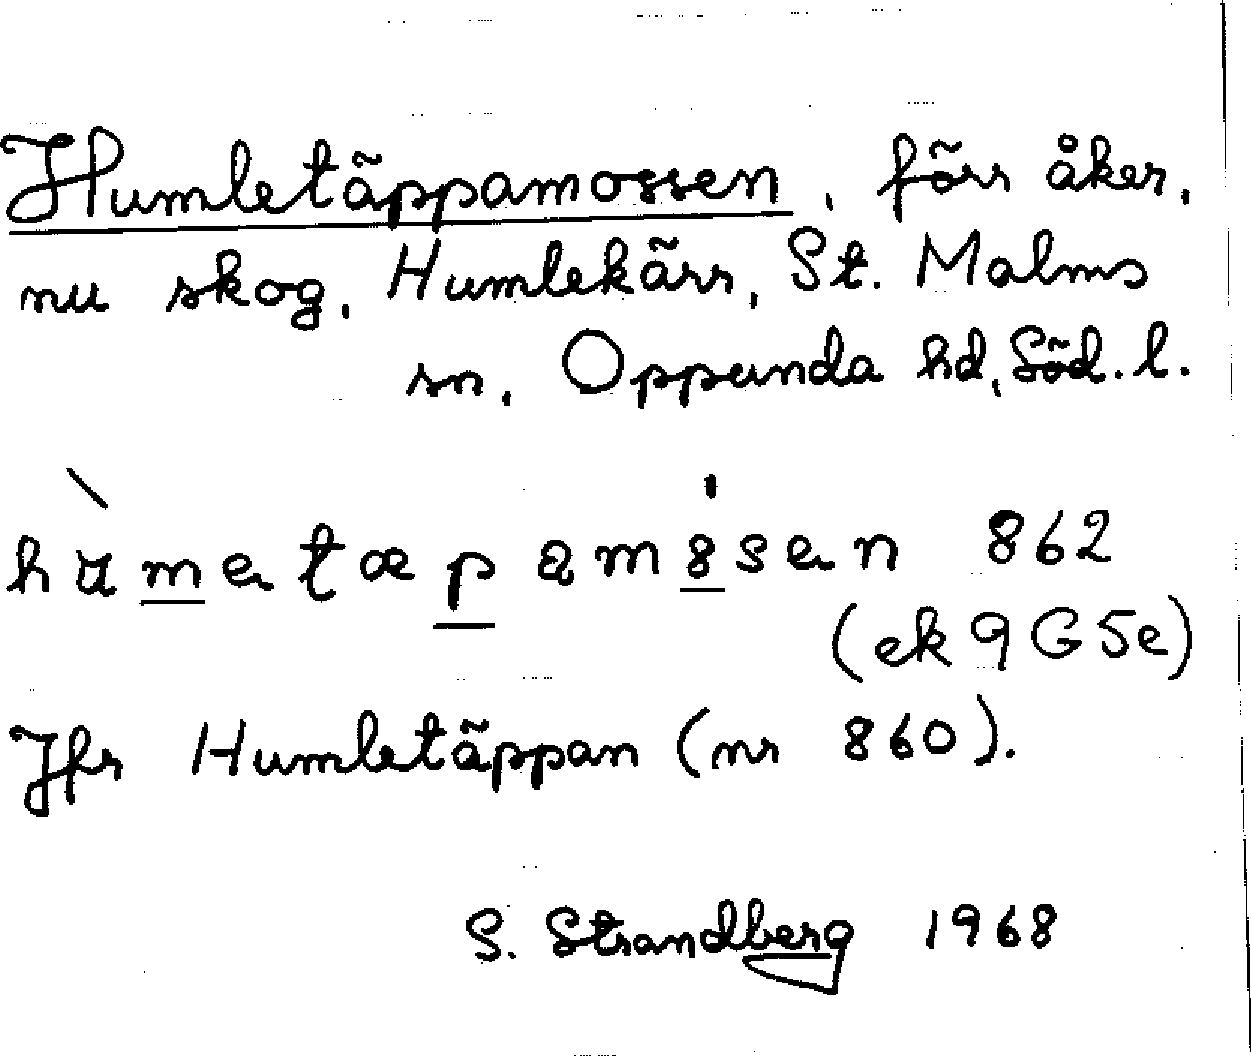 Humletäppamossen, förr åker,
nu skog, Humlekärr, St. Malms
sn, Oppunda hd, Söd. l.
862
(ek 9 G 5e)
Jfr Humletäppan (nr 860).
S. Strandberg 1968